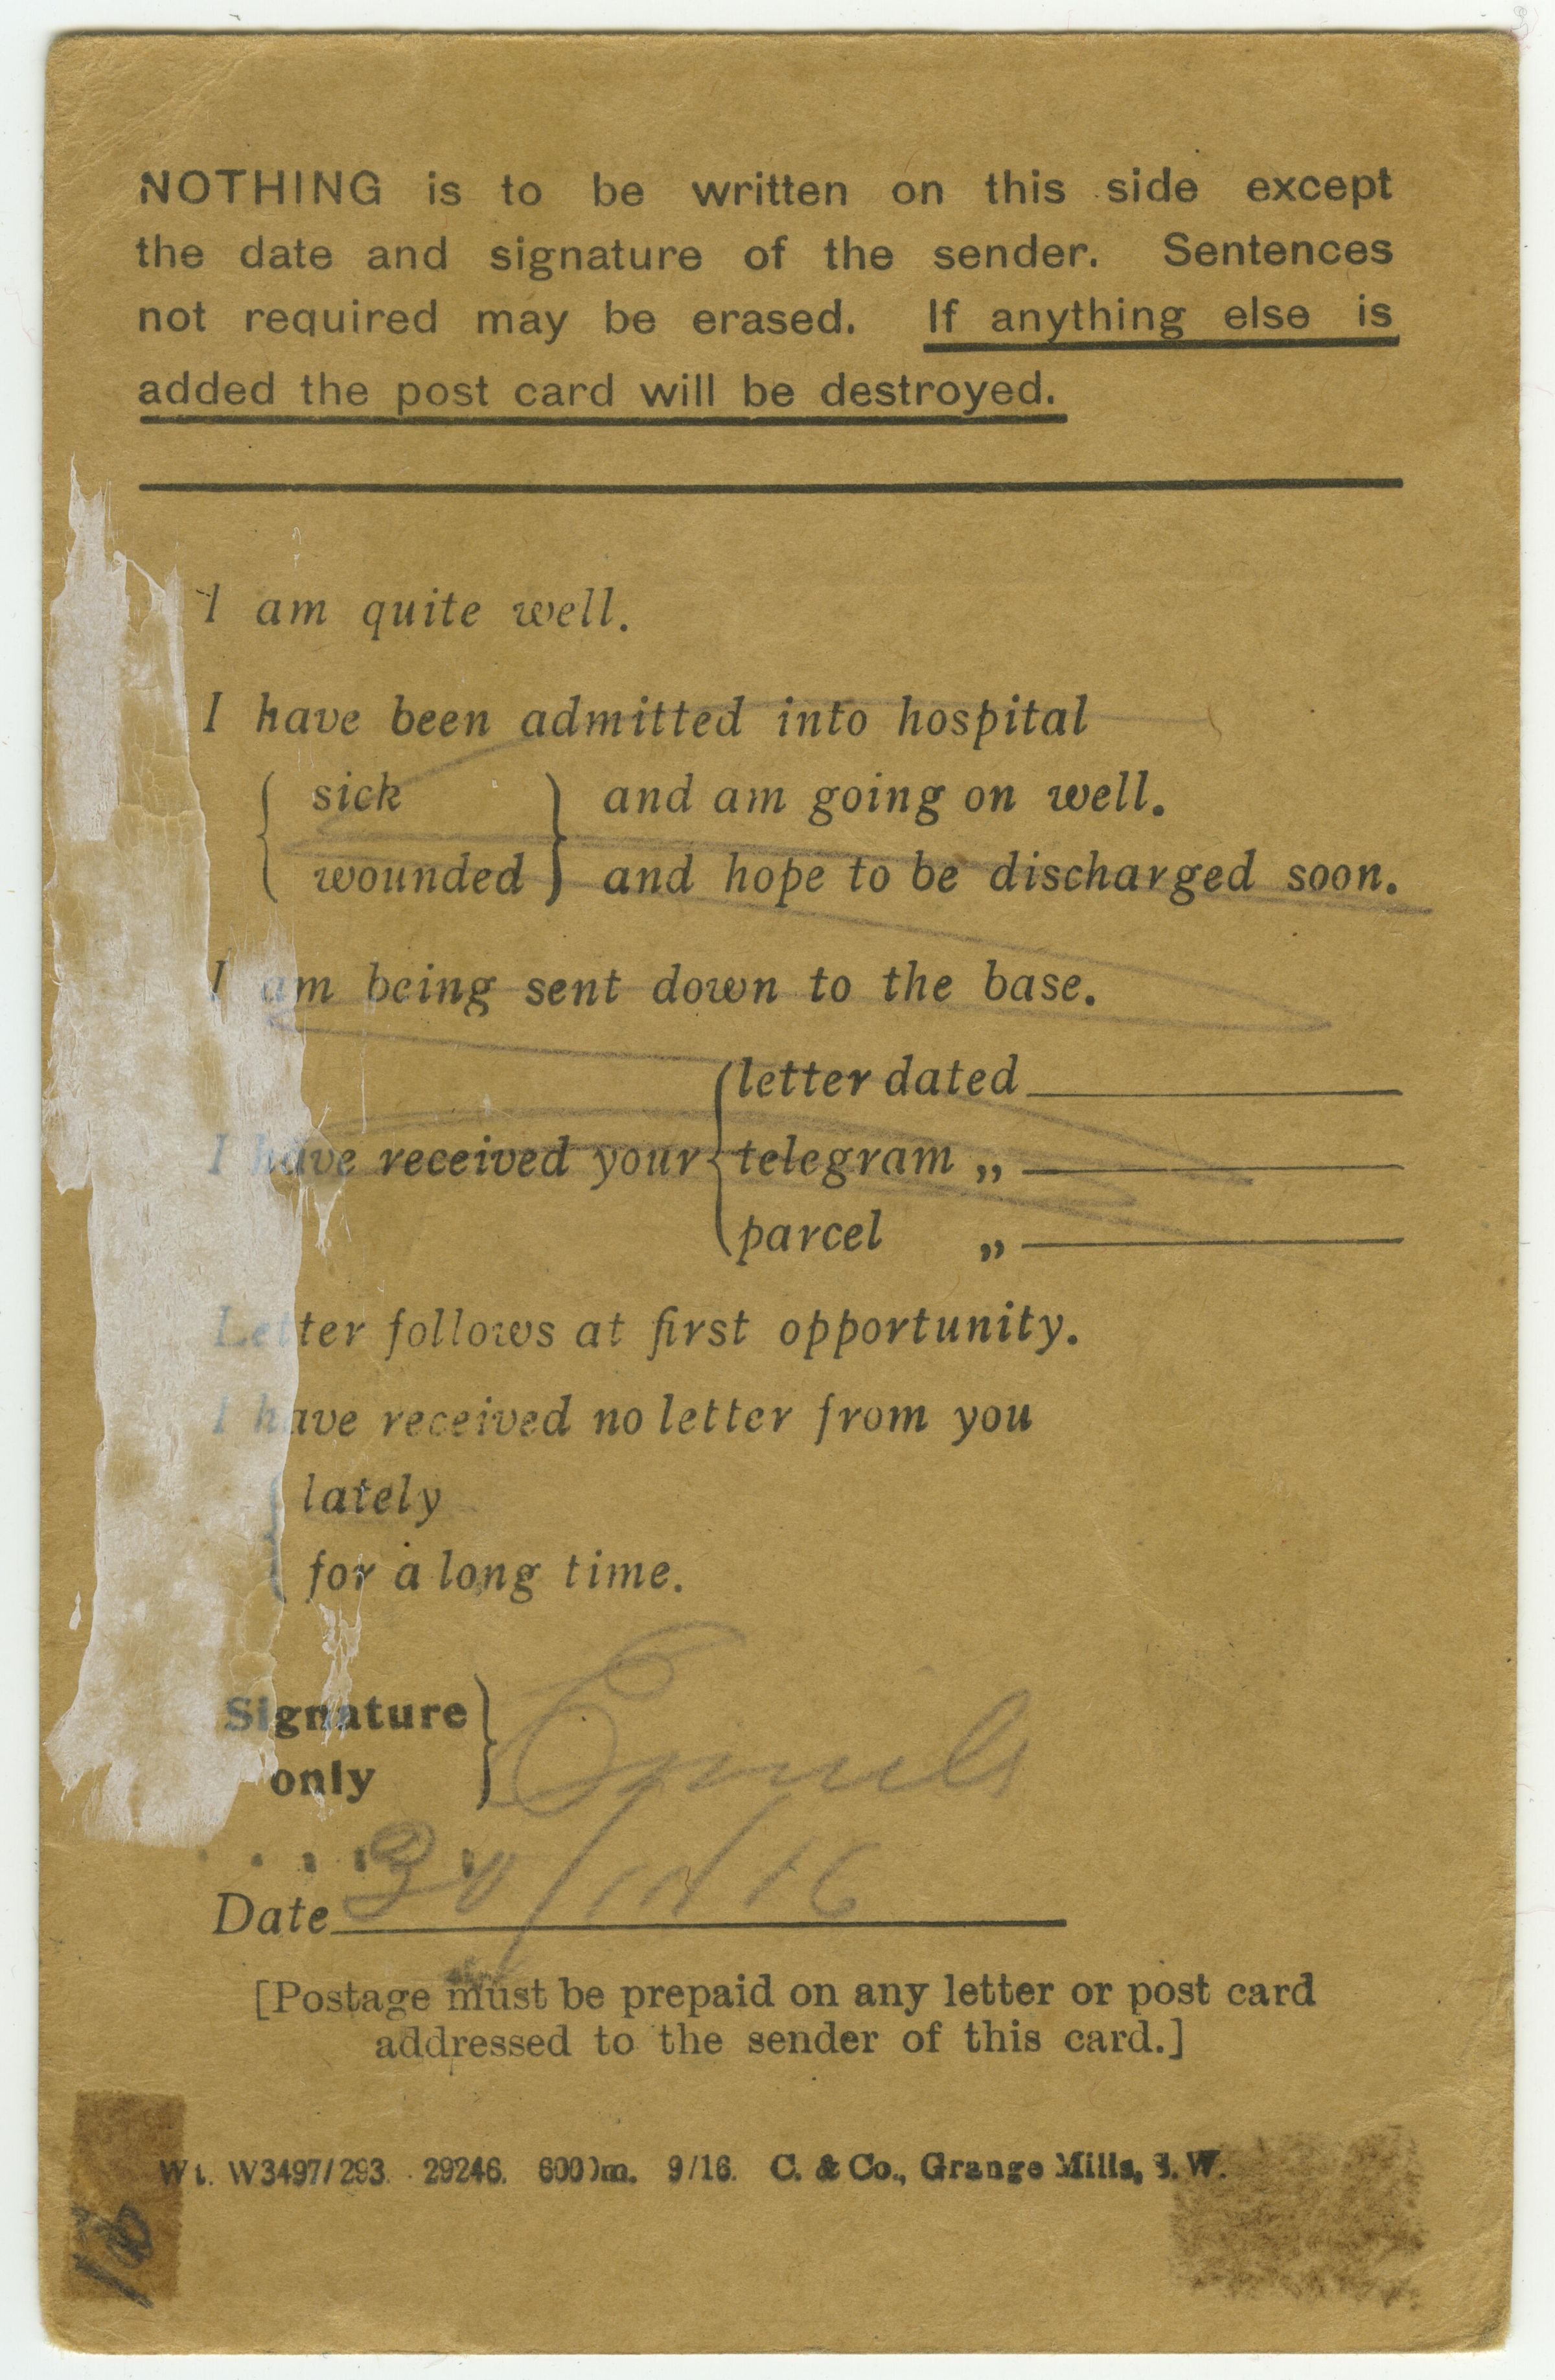 NOTHING is to be written on this side except
the date and signature of the sender. Sentences
not required may be erased. If anything else is
added the post card will be destroyed.
I am quite well.
I have been admitted into hospital
{ sick } and am going on well.
{ wounded } and hope to be discharged soon.
I am being sent down to the base.
{ letter dated
I have received your { telegram „
{ parcel „
Letter follows at first opportunity.
I have received no letter from you
{ lately
{ for a long time.
Signature }
only }
Date 30/
[Postage must be prepaid on any letter or post card
addressed to the sender of this card.]
Wt. W3497/293. 29246. 6000m. 9/16. C. & Co., Grange Mills, S.W.